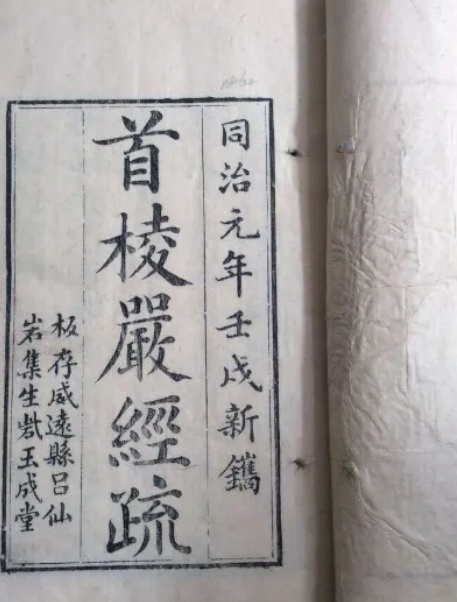 同治元年壬戌新鐫
首棱嚴經疏
板存威遠縣呂仙
岩集生砦玉成堂